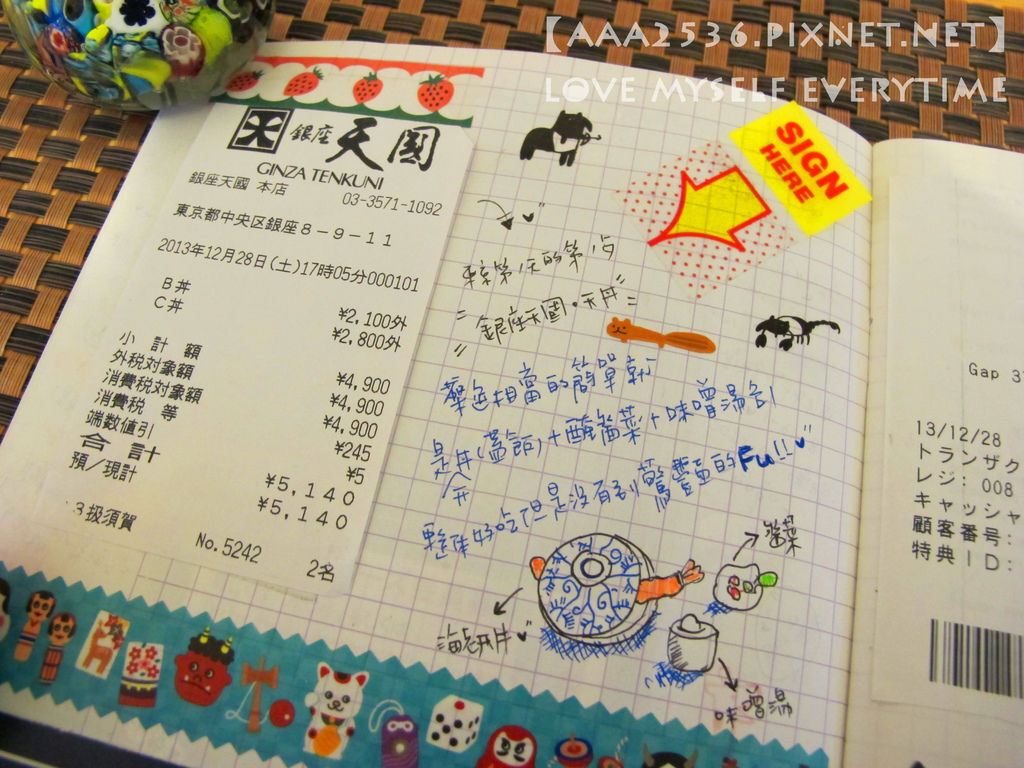 【AAA2536.PIXNET.NET】
LOVE MYSELF EVERYTIME
天 銀座 天國
GINZA TENKUNI
銀座天國 本店
03-3571-1092
東京都中央区銀座8-9-11
2013年12月28日(土)17時05分000101
B丼 ¥2,100外
C丼 ¥2,800外
小計額 ¥4,900
外税対象額 ¥4,900
消費税対象額 ¥4,900
消費税 等 ¥245
端数値引 ¥5
合計 ¥5,140
預/現計 ¥5,140
扱須賀
No.5242 2名
SIGN
HERE
東京第1天的第1句
"銀座天國・天丼"
擊色相當的簡單就
是天丼(蓋飯)+醃醬菜+味噌湯
整体好吃但是沒有到驚豔的Fu!!
醬菜
海老天丼
味噌湯
Gap
13/12/28
トランザク
レジ: 008
キャッシャ
顧客番号:
特典ID: